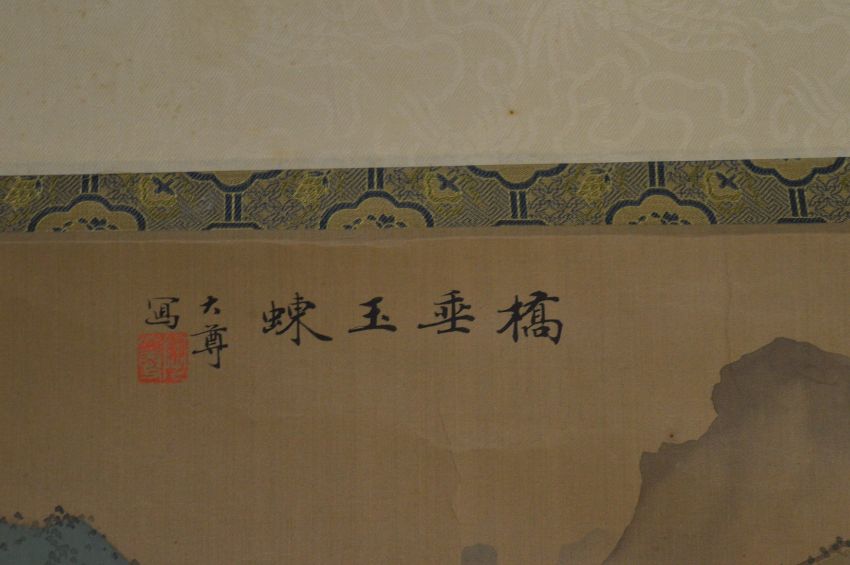 橋垂玉蝀
大尊
寫